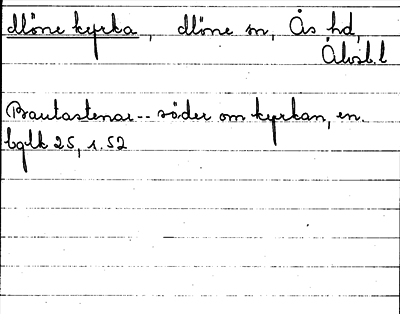 Möne kyrka, Möne sn, Ås hd,
Älvsb.l
Bautastenar-- söder om kyrkan, en.
bglk 25, s. 52